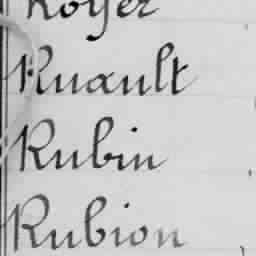 Royer
Ruault
Rubin
Rubion